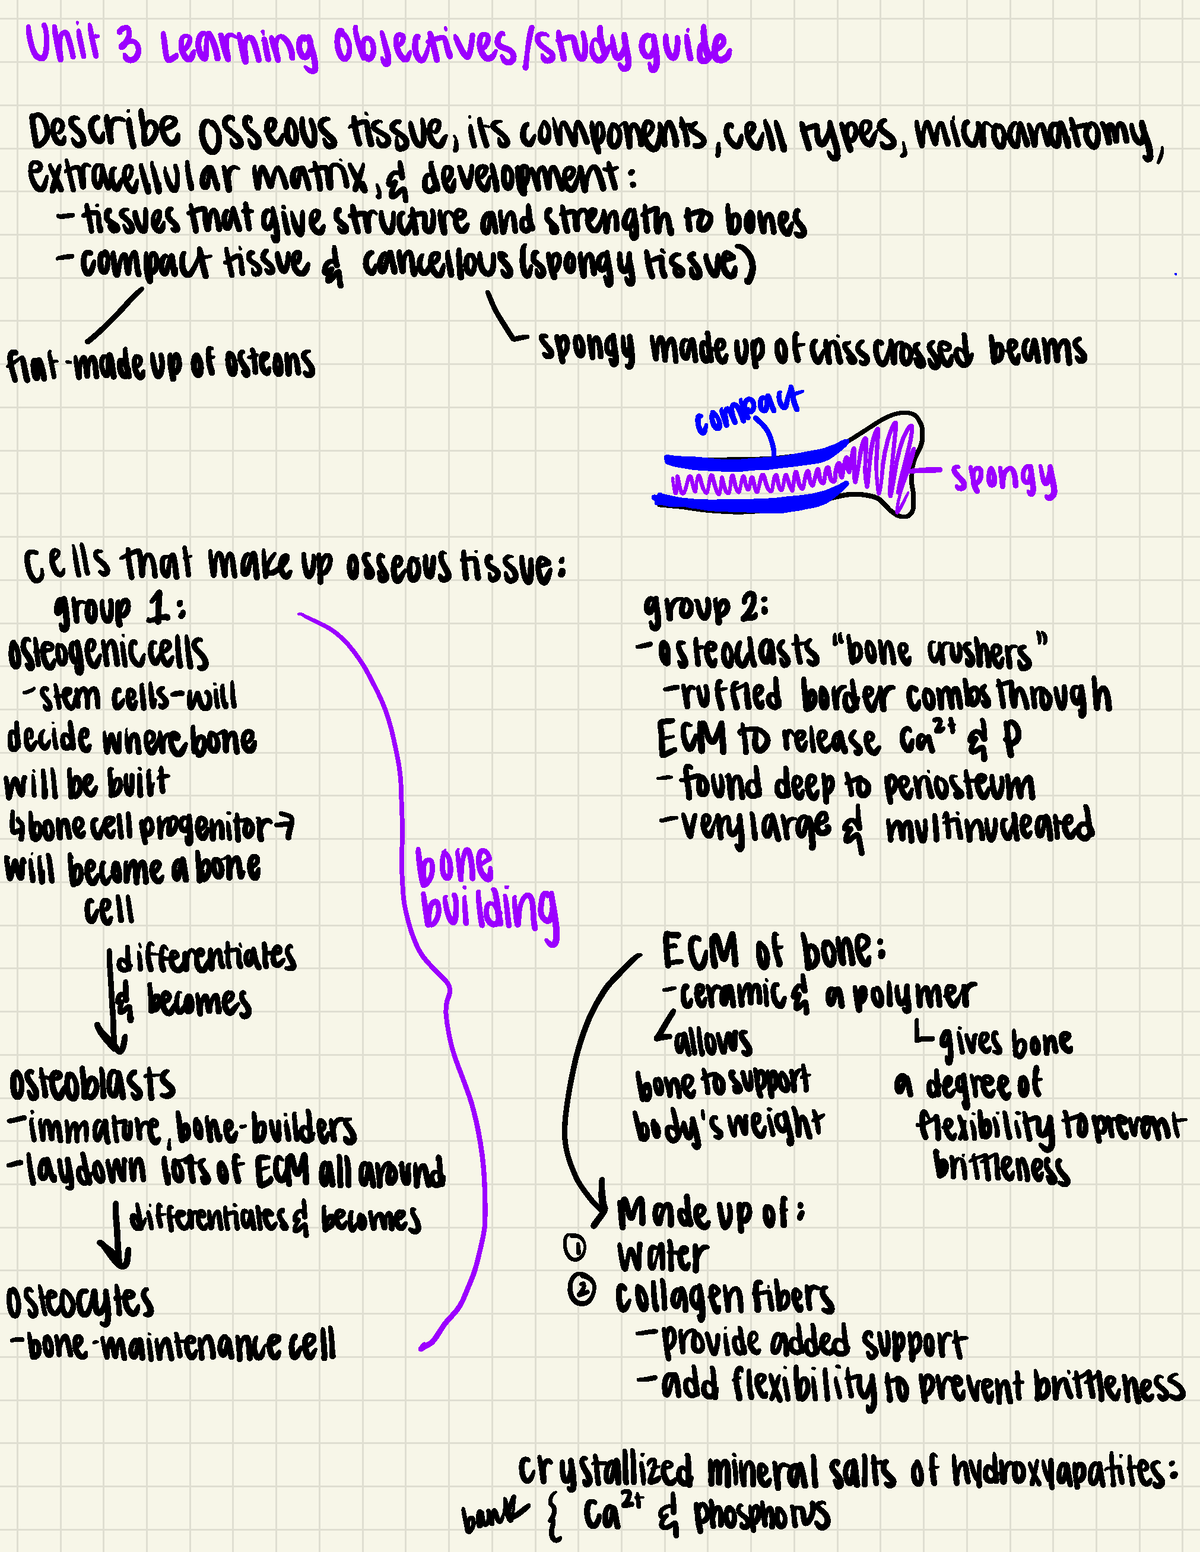 Unit 3 Learning Objectives/study guide
Describe osseous tissue, its components, cell types, microanatomy,
extracellular matrix, & development:
- tissues that give structure and strength to bones
- compact tissue & cancellous (spongy tissue)
flat - made up of osteons
spongy made up of criss crossed beams
compact
spongy
Cells that make up osseous tissue:
group 1:
osteogenic cells
- stem cells - will
decide where bone
will be built
↳ bone cell progenitor →
will become a bone
cell
differentiates
& becomes
osteoblasts
- immature, bone-builders
- laydown lots of ECM all around
differentiates & becomes
osteocytes
- bone-maintenance cell
bone
building
group 2:
- osteoclasts "bone crushers"
- ruffled border combs through
ECM to release Ca²⁺ & P
- found deep to periosteum
- very large & multinucleated
ECM of bone:
- ceramic & a polymer
allows
bone to support
body's weight
gives bone
a degree of
flexibility to prevent
brittleness
Made up of:
① water
② collagen fibers
- provide added support
- add flexibility to prevent brittleness
crystallized mineral salts of hydroxyapatites:
bank { Ca²⁺ & phosphorus